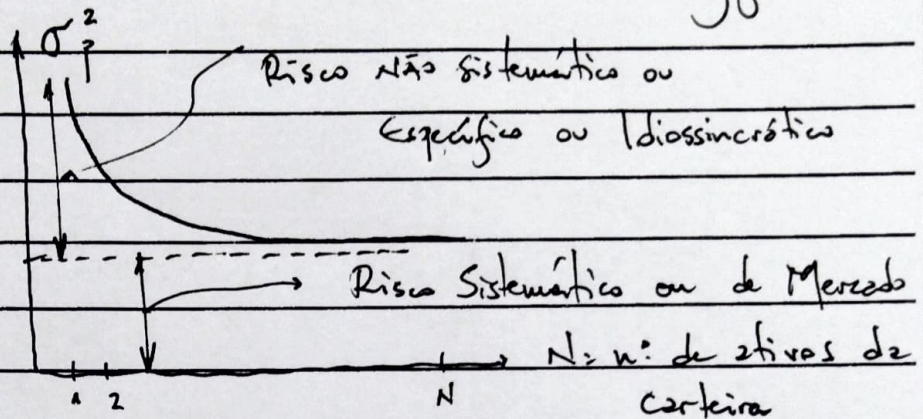 σ²p
Risco NÃO Sistemático ou
Específico ou Idiossincrático
Risco Sistemático ou de Mercado
N = nº de ativos da
carteira
1 2 N